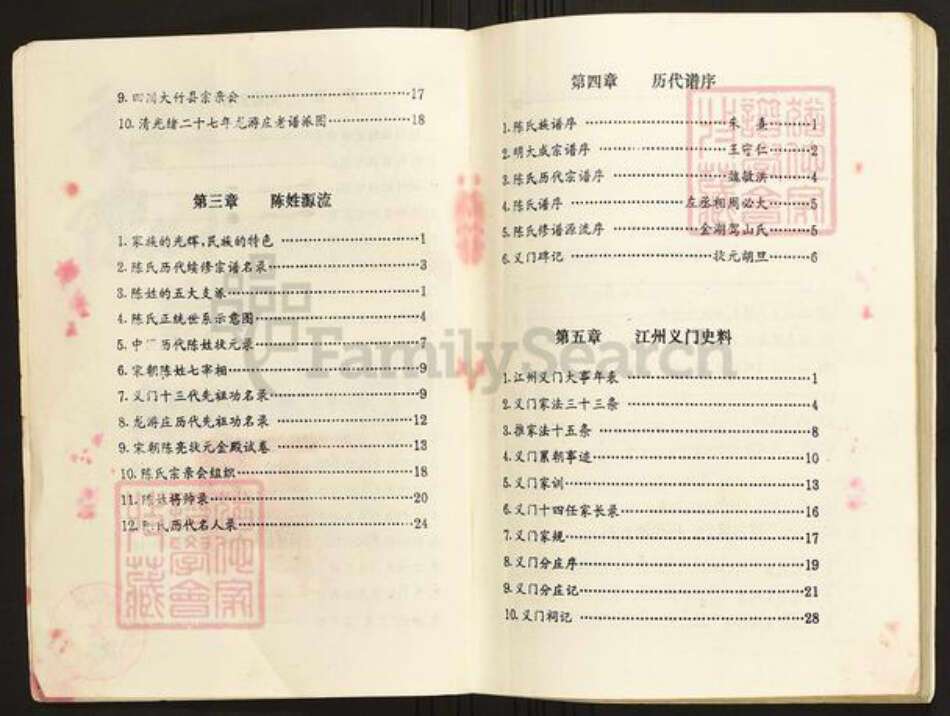 9.四川大竹县宗亲会……17
10.清光绪二十七年龙游庄老谱派图……18
第三章 陈姓源流
1.家族的光辉,民族的特色……1
2.陈氏历代续修宗谱名录……3
3.陈姓的五大支派……1
4.陈氏正统世系示意图……4
5.中 历代陈姓状元录……7
6.宋朝陈姓七宰相……9
7.义门十三代先祖功名录……9
8.龙游庄历代先祖功名录……12
9.宋朝陈亮状元金殿试卷……13
10.陈氏宗亲会组织……18
11.陈 将帅录……20
12.陈氏历代名人录……24
第四章 历代谱序
1.陈氏族谱序……朱熹……1
2.明大成宗谱序……王守仁……2
3.陈氏历代宗谱序……魏敏洪……4
4.陈氏谱序……左丞相周必大……5
5.陈氏修谱源流序……金湖驾山氏……5
6.义门碑记……状元胡旦……6
第五章 江州义门史料
1.江州义门大事年表……1
2.义门家法三十三条……4
3.推家法十五条……8
4.义门累朝事迹……10
5.义门家训……13
6.义门十四任家长录……16
7.义门家规……17
8.义门分庄序……19
9.义门分庄记……21
10.义门祠记……28
FamilySearch